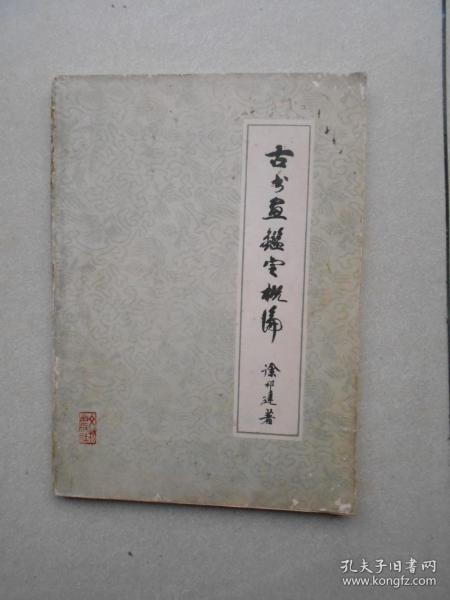 古书画鉴定概论
徐邦达著
孔夫子旧书网
www.kongfz.com